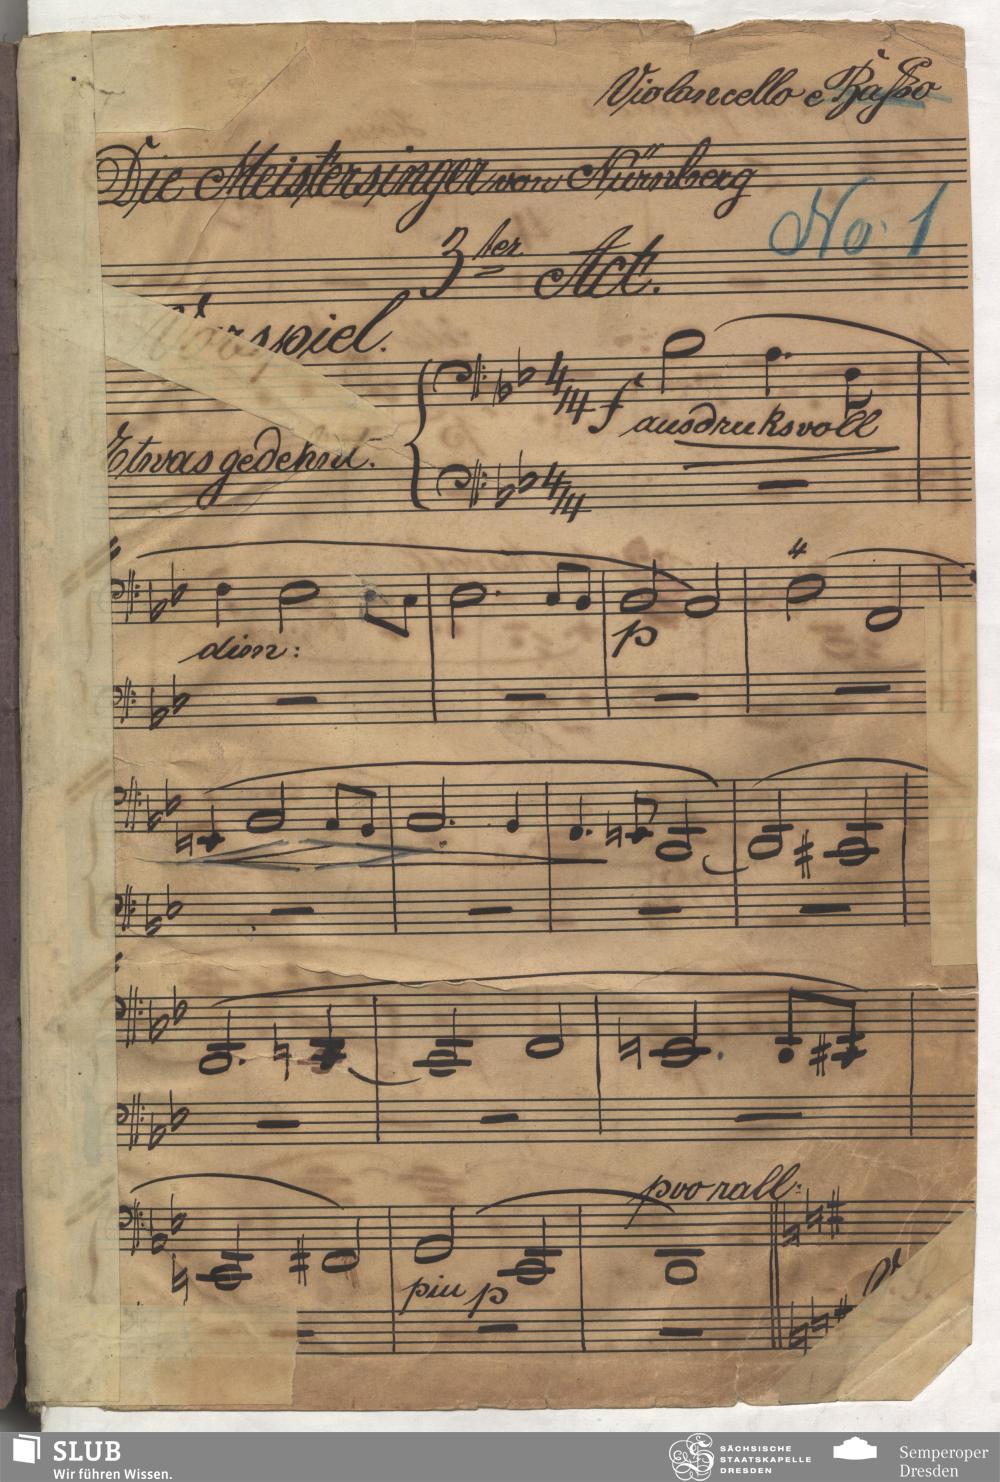 Violoncello e Basso
Die Meistersinger von Nürnberg
No. 1
3ter Act.
Vorspiel.
f ausdruksvoll
Etwas gedehnt.
4
dim:
p
poo rall:
piu p
SLUB
Wir führen Wissen.
SÄCHSISCHE
STAATSKAPELLE
DRESDEN
Semperoper
Dresden